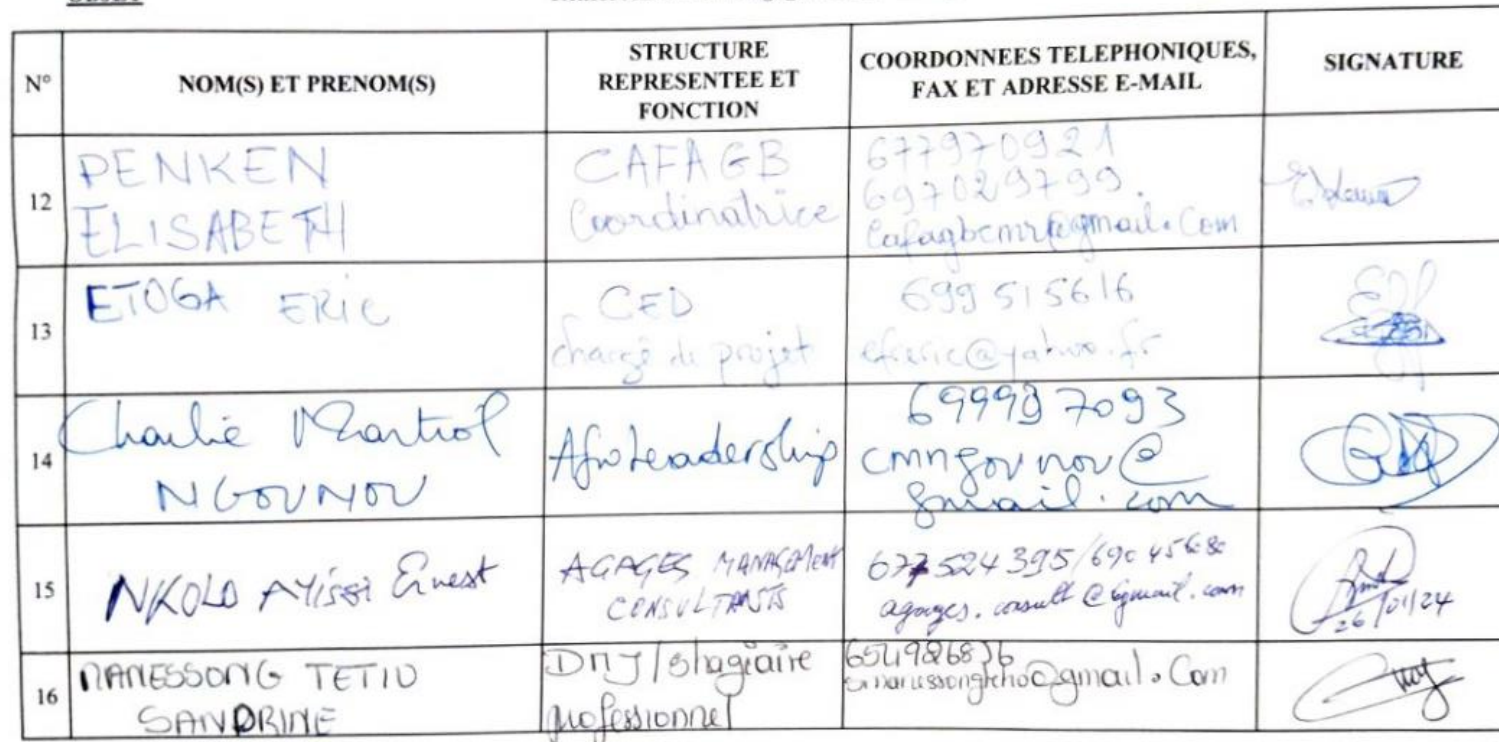 N°
NOM(S) ET PRENOM(S)
STRUCTURE
REPRESENTEE ET
FONCTION
COORDONNEES TELEPHONIQUES,
FAX ET ADRESSE E-MAIL
SIGNATURE
12
PENKEN
ELISABETH
CAFAGB
Coordinatrice
677970921
697029799.
Cafagbcmr@gmail.Com
13
ETOGA ERIC
CED
chargé de projet
699 515616
efreric@yahoo.fr
14
Charlie Martial
NGOUNOU
AfroLeadership
699997093
cmngounou@
gmail.com
15
NKOLO AYISSI Ernest
AGAGES MANAGEMENT
CONSULTANTS
677524395/
agages.consult@gmail.com
26/01/24
16
NANESSONG TETIO
SANDRINE
DMJ/stagiaire
professionnel
654926836
@gmail.Com